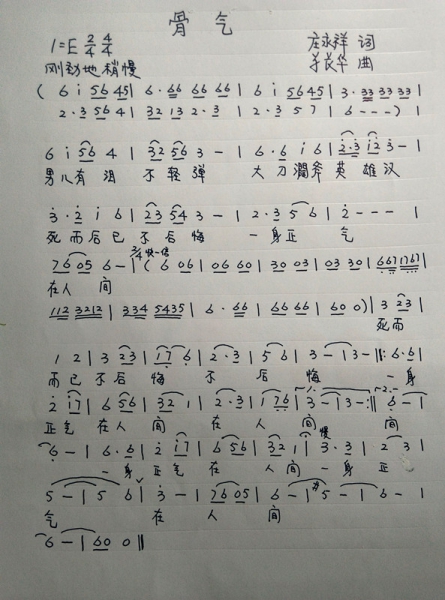 骨气
1=E 2/4 4/4 庄永祥 词
刚劲地 稍慢 羊茂华 曲
( 6 i 56 45 | 6·66 66 66 | 6 i 56 45 | 3·33 33 33 |
2·3 56 4 | 32 13 2·3 | 2·3 5 7 | 6 - - - ) |
6 i 56 4 | 32 56 3 - | 6·6 i 6 | 2·3 i2 3 - |
男儿有泪 不轻弹 大刀阔斧英雄汉
3·2 i 6 | 23 54 3 - | 2·3 5 6 | 2 - - - |
死而后已不后悔 一身正 气
2/4 快一倍
76 05 6 - | ( 6 06 | 06 60 | 30 03 | 03 30 | 667 1767 |
在人 间
112 3212 | 334 5435 | 6·66 | 66 66 | 60 0 ) | 3 23 |
死而
1 2 | 3 23 | i7 6 | 2·3 | 5 6 | 3 - | 3 - ‖: 6·6 |
而已 不后 悔 不 后 悔 一身
2 i7 | 6 56 | 32 1 | 2·3 | 1 76 | 3 - | 3 - :‖ 6 - |
正气 在人 间 在 人 间 间
6 - | 6·6 | 2 i7 | 6 56 | 32 1 | 3·3 | 2 3 |
慢
一身 正气 在 人间 一身 正
5 - | 5 6 | 3 - | 76 05 | 6 - | 5 - | 6 - |
气 在 人 间
6 - | 60 0 ‖